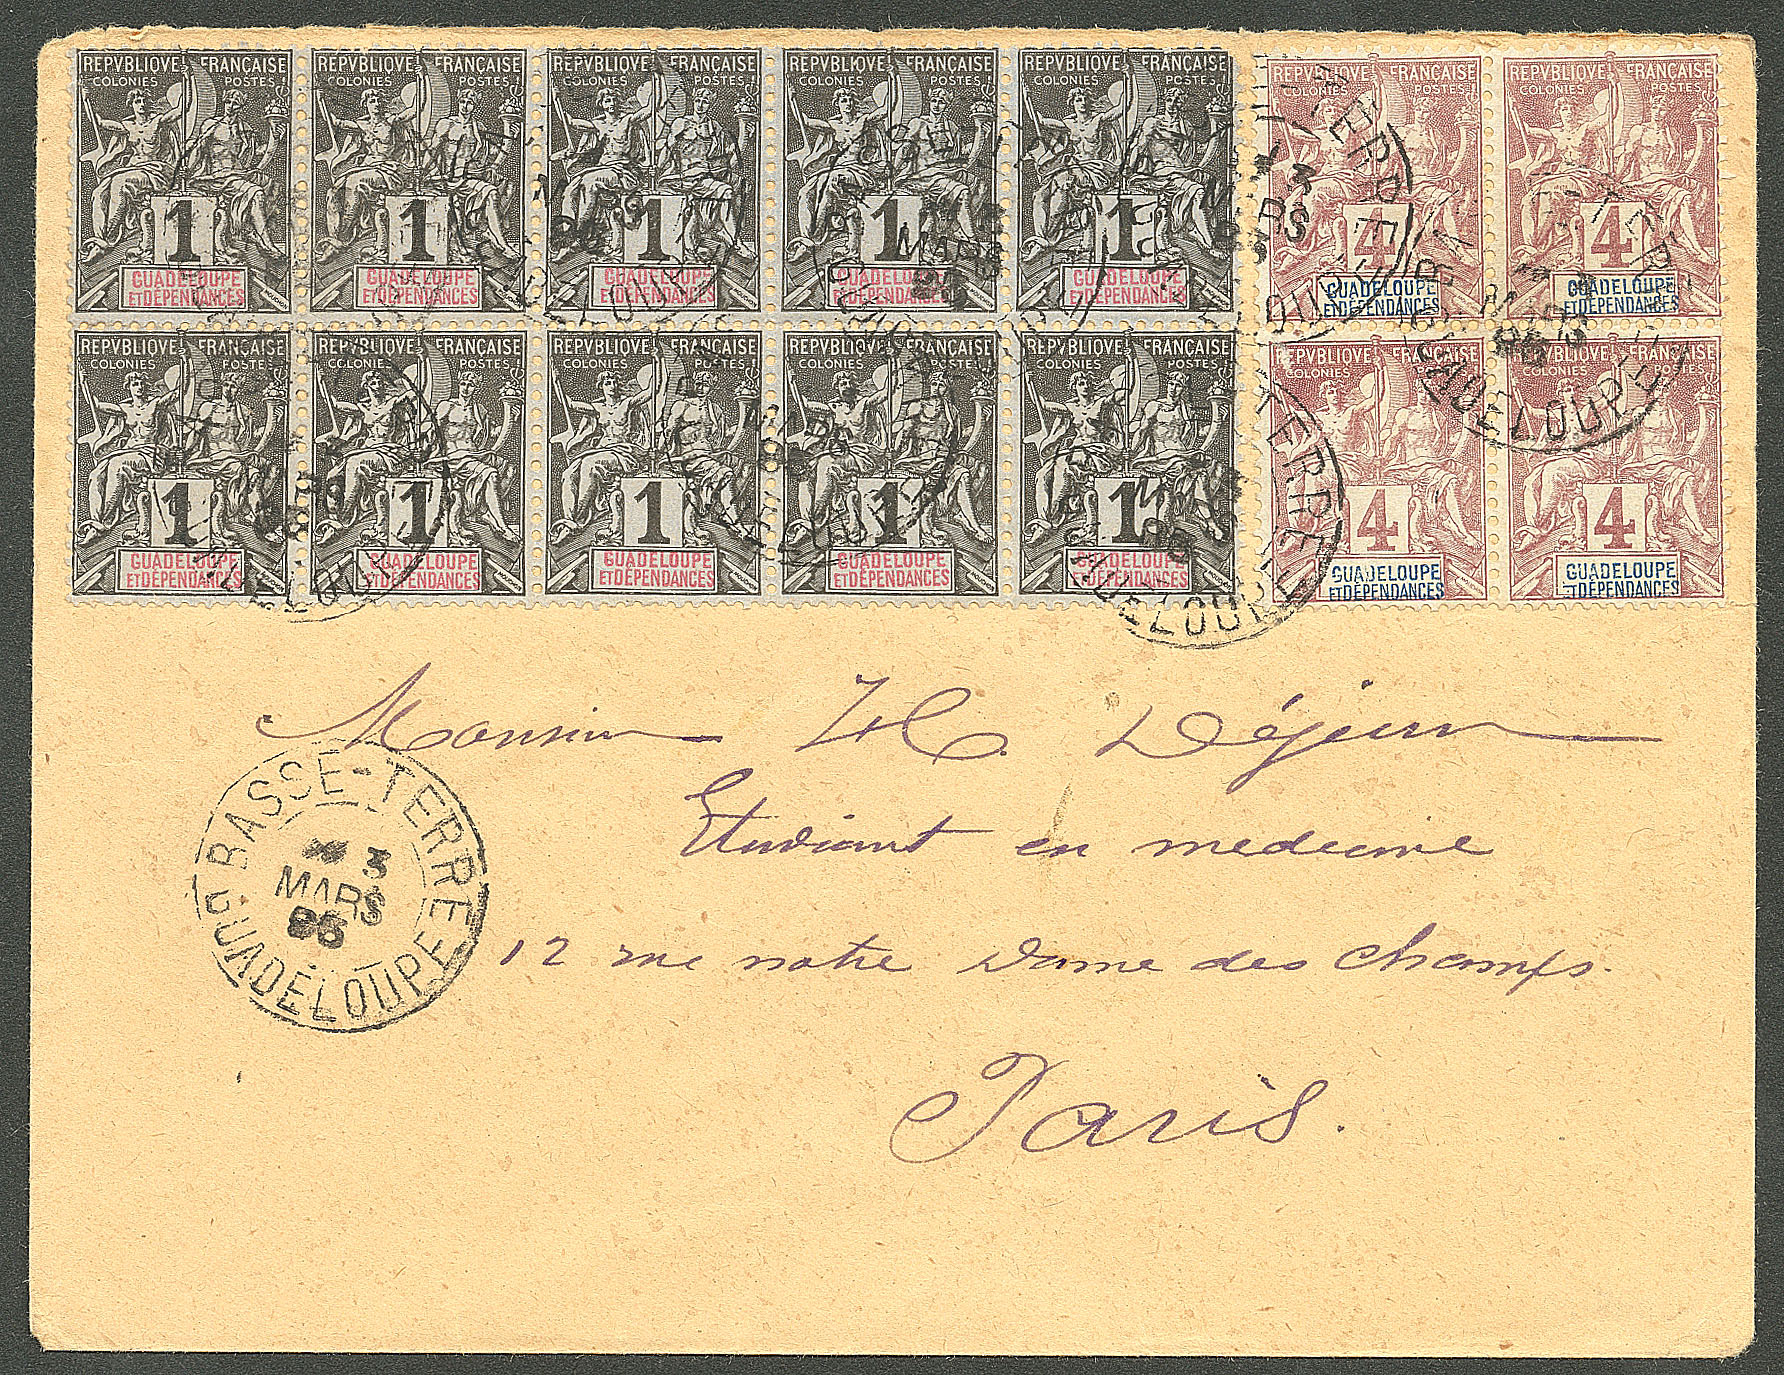 REPVBLIQVE FRANÇAISE REPVBLIQVE FRANÇAISE REPVBLIQVE FRANÇAISE REPVBLIQVE FRANÇAISE REPVBLIQVE FRANÇAISE REPVBLIQVE FRANÇAISE REPVBLIQVE FRANÇAISE
COLONIES POSTES COLONIES POSTES COLONIES POSTES COLONIES POSTES COLONIES POSTES COLONIES POSTES COLONIES POSTES
1 1 1 1 1 4 4
GUADELOUPE GUADELOUPE GUADELOUPE GUADELOUPE GUADELOUPE GUADELOUPE GUADELOUPE
ET DÉPENDANCES ET DÉPENDANCES ET DÉPENDANCES ET DÉPENDANCES ET DÉPENDANCES ET DÉPENDANCES ET DÉPENDANCES
REPVBLIQVE FRANÇAISE REPVBLIQVE FRANÇAISE REPVBLIQVE FRANÇAISE REPVBLIQVE FRANÇAISE REPVBLIQVE FRANÇAISE REPVBLIQVE FRANÇAISE REPVBLIQVE FRANÇAISE
COLONIES POSTES COLONIES POSTES COLONIES POSTES COLONIES POSTES COLONIES POSTES COLONIES POSTES COLONIES POSTES
1 1 1 1 1 4 4
GUADELOUPE GUADELOUPE GUADELOUPE GUADELOUPE GUADELOUPE GUADELOUPE GUADELOUPE
ET DÉPENDANCES ET DÉPENDANCES ET DÉPENDANCES ET DÉPENDANCES ET DÉPENDANCES ET DÉPENDANCES ET DÉPENDANCES
Monsieur H. Déjean
Etudiant en medecine
12 rue notre Dame des Champs.
Paris.
BASSE-TERRE
3
MARS
95
GUADELOUPE